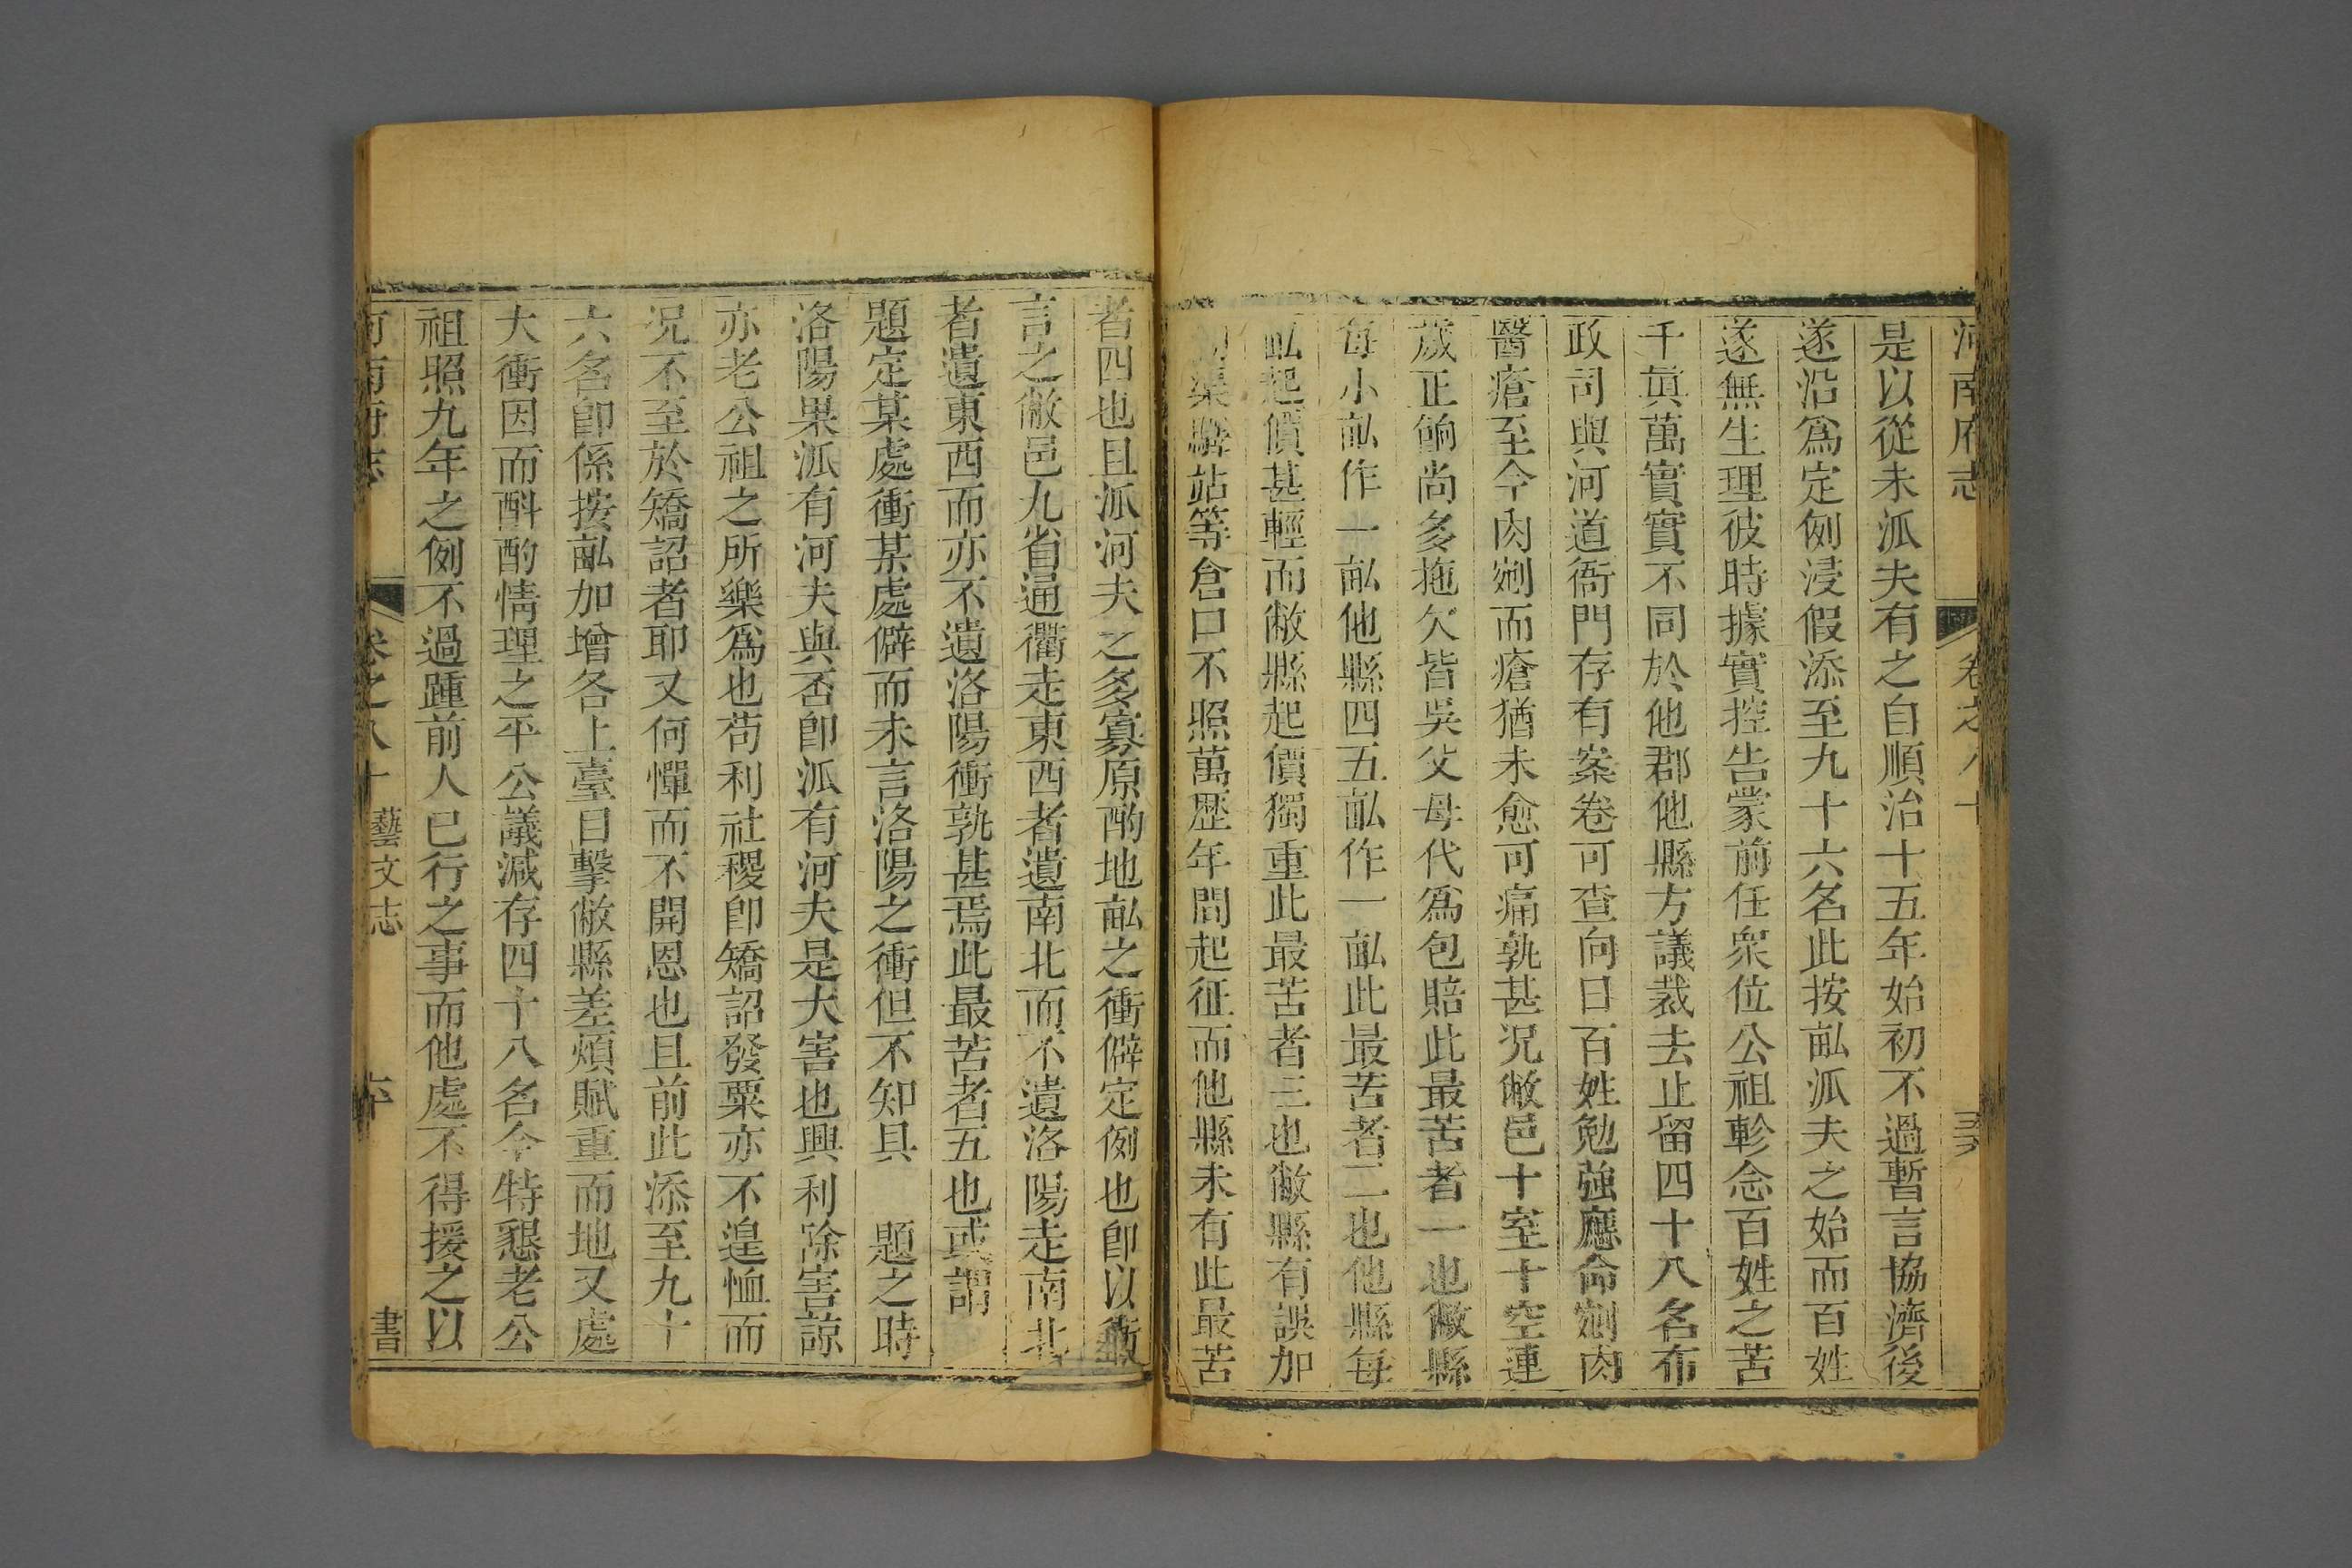 河南府志 卷之八十
是以從未派夫有之自順治十五年始初不過暫言協濟後
遂沿爲定例浸假添至九十六名此按畝派夫之始而百姓
遂無生理彼時據實控告蒙前任衆位公祖軫念百姓之苦
千眞萬實實不同於他郡他縣方議裁去止留四十八名布
政司與河道衙門存有案卷可查向日百姓勉強應命剜肉
醫瘡至今肉剜而瘡猶未愈可痛孰甚況敝邑十室十空連
歲正餉尚多拖欠皆吳父母代爲包賠此最苦者一也敝縣
每小畝作一畝他縣四五畝作一畝此最苦者二也他縣每
畝起價甚輕而敝縣起價獨重此最苦者三也敝縣有誤加
渠驛站等倉口不照萬歷年間起征而他縣未有此最苦
者四也且派河夫之多寡原酌地畝之衝僻定例也卽以衝
言之敝邑九省通衢走東西者遺南北而不遺洛陽走南北
者遺東西而亦不遺洛陽衝孰甚焉此最苦者五也或謂
題定某處衝某處僻而未言洛陽之衝但不知具 題之時
洛陽果派有河夫與否卽派有河夫是大害也興利除害諒
亦老公祖之所樂爲也苟利社稷卽矯詔發粟亦不遑恤而
況不至於矯詔者耶又何憚而不開恩也且前此添至九十
六名卽係按畝加增各上臺目擊敝縣差煩賦重而地又處
大衝因而斟酌情理之平公議減存四十八名今特懇老公
祖照九年之例不過踵前人已行之事而他處不得援之以
河南府志 卷之八十 藝文志 書